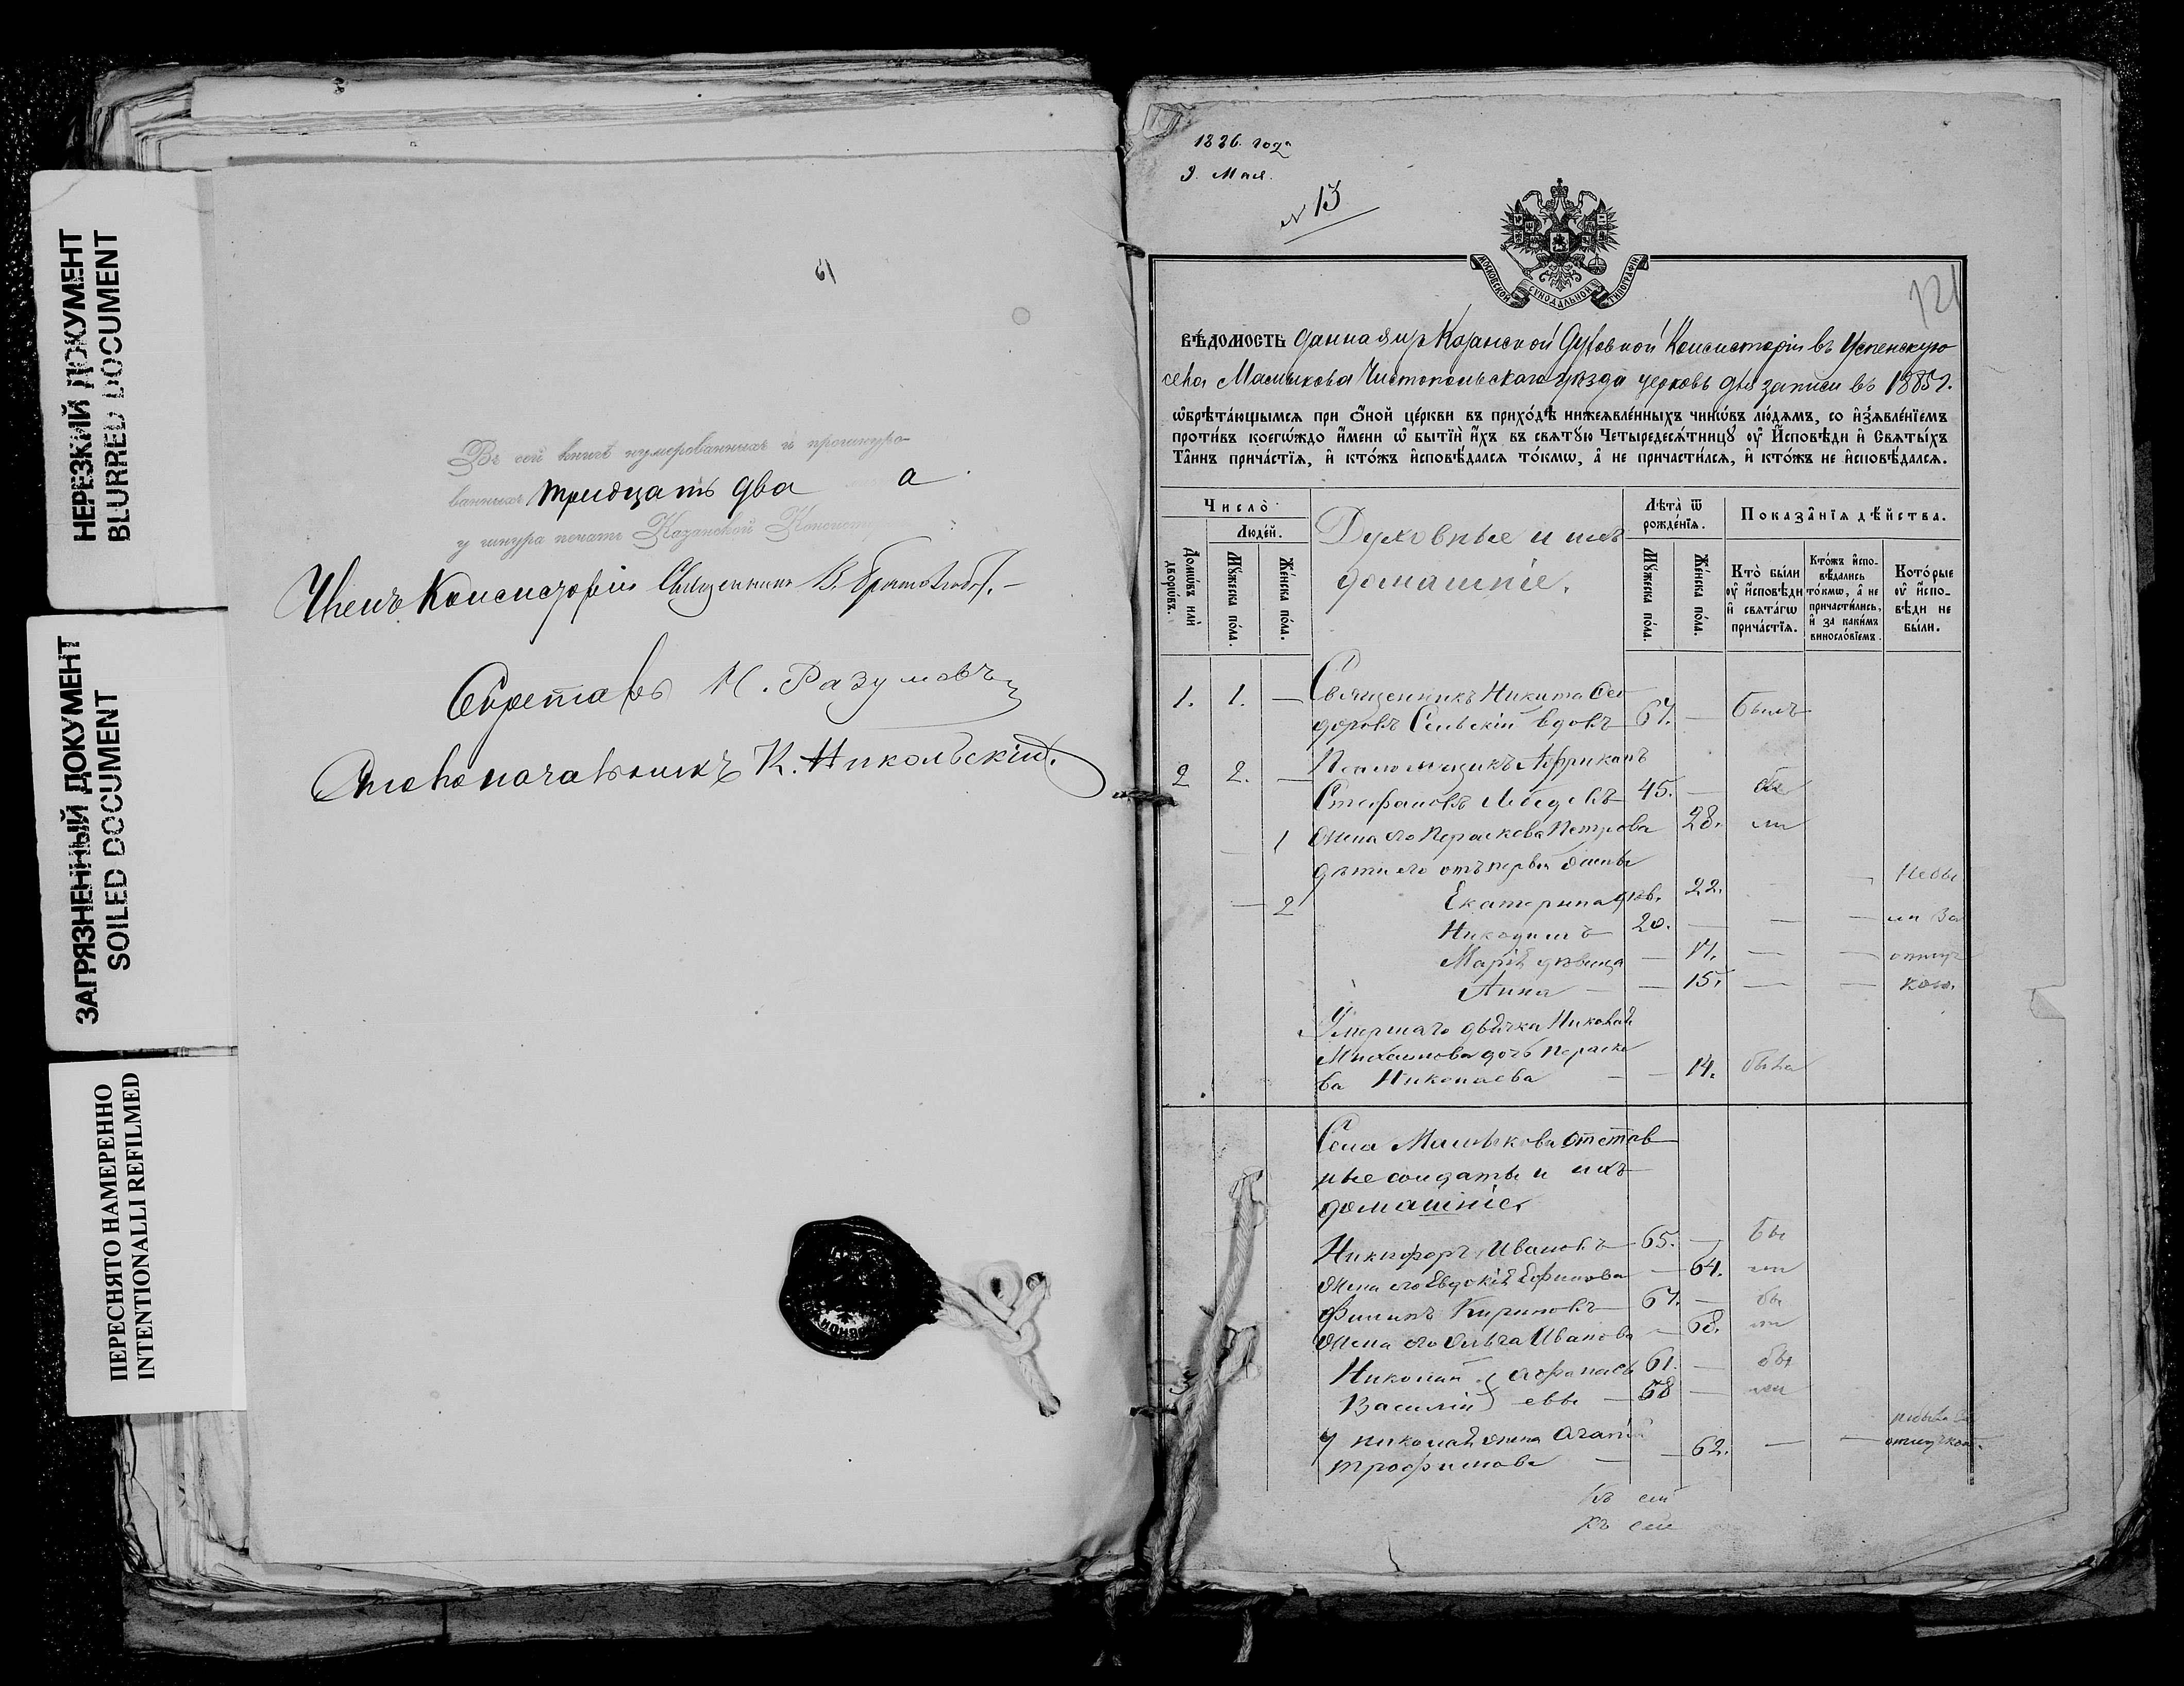 НЕРЕЗКИЙ ДОКУМЕНТ
BLURRED DOCUMENT
ЗАГРЯЗНЕННЫЙ ДОКУМЕНТ
SOILED DOCUMENT
ПЕРЕСНЯТО НАМЕРЕННО
INTENTIONALLI REFILMED
61
Въ сей книгѣ нумерованныхъ и прошнуро-
ванныхъ тридцать два а
у шнура печать Казанской Консист
Членъ Консисторіи Священникъ В.
Секретарь Н. Разумовъ
Столоначальникъ К. Никольскій.
1886. года
9. Мая.
N 13
МОСКОВСКОЙ СѴНОДАЛЬНОЙ ТИПОГРАФІИ
121
ВѢДОМОСТЬ данная изъ Казанской Духовной Консисторіи въ Успенскую
села Мамыкова Чистопольскаго уѣзда церковь для записи въ 1885 г.
ѡ҆брѣта́ющымсѧ при о҆́ной це́ркви въ прихо́дѣ нижеѧвле́нныхъ чинѡ́въ лю́демъ, со и҆з̾ѧвле́нїемъ
проти́въ коегѡ́ждо и҆́мени ѡ҆ бытїѝ и҆́хъ въ свѧту́ю Четыредесѧ́тницу ѹ҆ И҆сповѣ́ди и҆ Свѧты́хъ
Та́инъ прича́стїѧ, и҆ кто́жъ и҆сповѣ́далсѧ то́кмѡ, а҆ не причасти́лсѧ, и҆ кто́жъ не и҆сповѣ́далсѧ.
Число̀
Люде́й.
Домѡ́въ и҆лѝ дворѡ́въ.
Мꙋ́жеска по́ла.
Же́нска по́ла.
Духовные и ихъ
домашніе.
Лѣта̀ ѿ рожде́нїѧ.
Мꙋ́жеска по́ла.
Же́нска по́ла.
Показа̑нїѧ дѣ́йства.
Кто̀ бы́ли ѹ҆ и҆сповѣ́ди и҆ свѧта́гѡ прича́стїѧ.
Кто́жъ и҆спо-вѣ́дались то́кмѡ, а҆ не причасти́лись, и҆ за каки́мъ виносло́вїемъ.
Кото́рые ѹ҆ и҆спо-вѣ́ди не бы́ли.
1. 1. — Священникъ Никита Ѳео
доровъ Сельскій вдовъ 67. — былъ
2 2. — Псаломщикъ Африканъ
Стефановъ Лебедевъ 45. — бы
1 Жена его Параскева Петрова 28. ли
дѣти его отъ первой жены
2 Екатерина дѣв. 22. — — Небы
Никодимъ 20. — — — ли за
Марія дѣвица — 17. — — отлуч
Анна — — 15. — — кою.
Умершаго дьячка Николая
Михайлова дочь Параске
ва Николаева — — 14. была
Села Мамыкова отстав
ные солдаты и ихъ
домашніе.
Никифоръ Ивановъ 65. — бы
Жена его Евдокія Ефимова — 64. ли
Филипъ Кириловъ 67. — бы
Жена его Ольга Иванова — 68. ли
Николай } Афанась 61. — бы
Василій } евы — 58 — ли
У Николая жена Агафія
Трофимова — — 62. — — небыла за отлучкою.